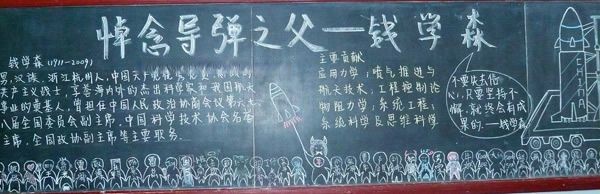 悼念导弹之父—钱学森
钱学森(1911-2009)
男,汉族,浙江杭州人,中国
共产主义战士,享誉海内外的杰出科学家和我国航天
事业的奠基人,曾担任中国人民政治协商会议第六、七
八届全国委员会副主席、中国科学技术协会名誉
主席、全国政协副主席等主要职务。
主要贡献
应用力学;喷气推进与
航天技术;工程控制论
物理力学;系统工程;
系统科学及思维科学
不要失去信
心,只要坚持不
懈,就终会有成
果的.—钱学森
CHINA